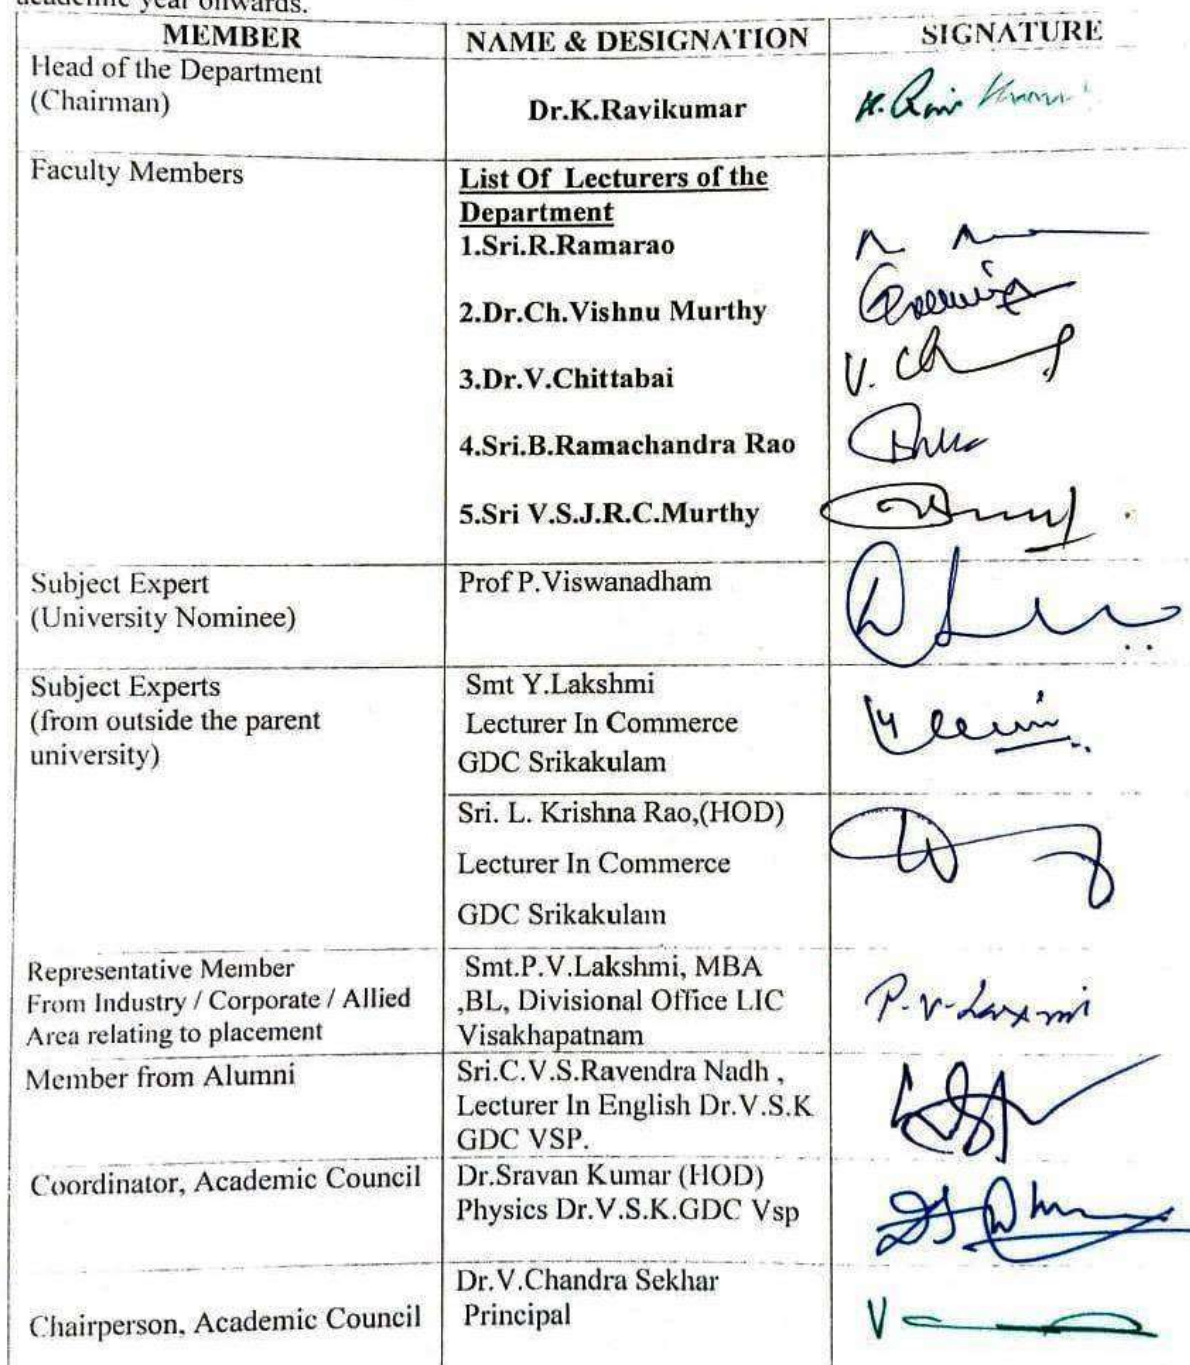 academic year onwards.
MEMBER NAME & DESIGNATION SIGNATURE
Head of the Department
(Chairman)
Dr.K.Ravikumar
K. Ravi Kumar
Faculty Members
List Of Lecturers of the
Department
1.Sri.R.Ramarao
2.Dr.Ch.Vishnu Murthy
3.Dr.V.Chittabai
V. Ch
4.Sri.B.Ramachandra Rao
5.Sri V.S.J.R.C.Murthy
Subject Expert
(University Nominee)
Prof P.Viswanadham
Subject Experts
(from outside the parent
university)
Smt Y.Lakshmi
Lecturer In Commerce
GDC Srikakulam
Sri. L. Krishna Rao,(HOD)
Lecturer In Commerce
GDC Srikakulam
Representative Member
From Industry / Corporate / Allied
Area relating to placement
Smt.P.V.Lakshmi, MBA
,BL, Divisional Office LIC
Visakhapatnam
P.V. Laxmi
Member from Alumni
Sri.C.V.S.Ravendra Nadh ,
Lecturer In English Dr.V.S.K
GDC VSP.
Coordinator, Academic Council
Dr.Sravan Kumar (HOD)
Physics Dr.V.S.K.GDC Vsp
Chairperson, Academic Council
Dr.V.Chandra Sekhar
Principal
V